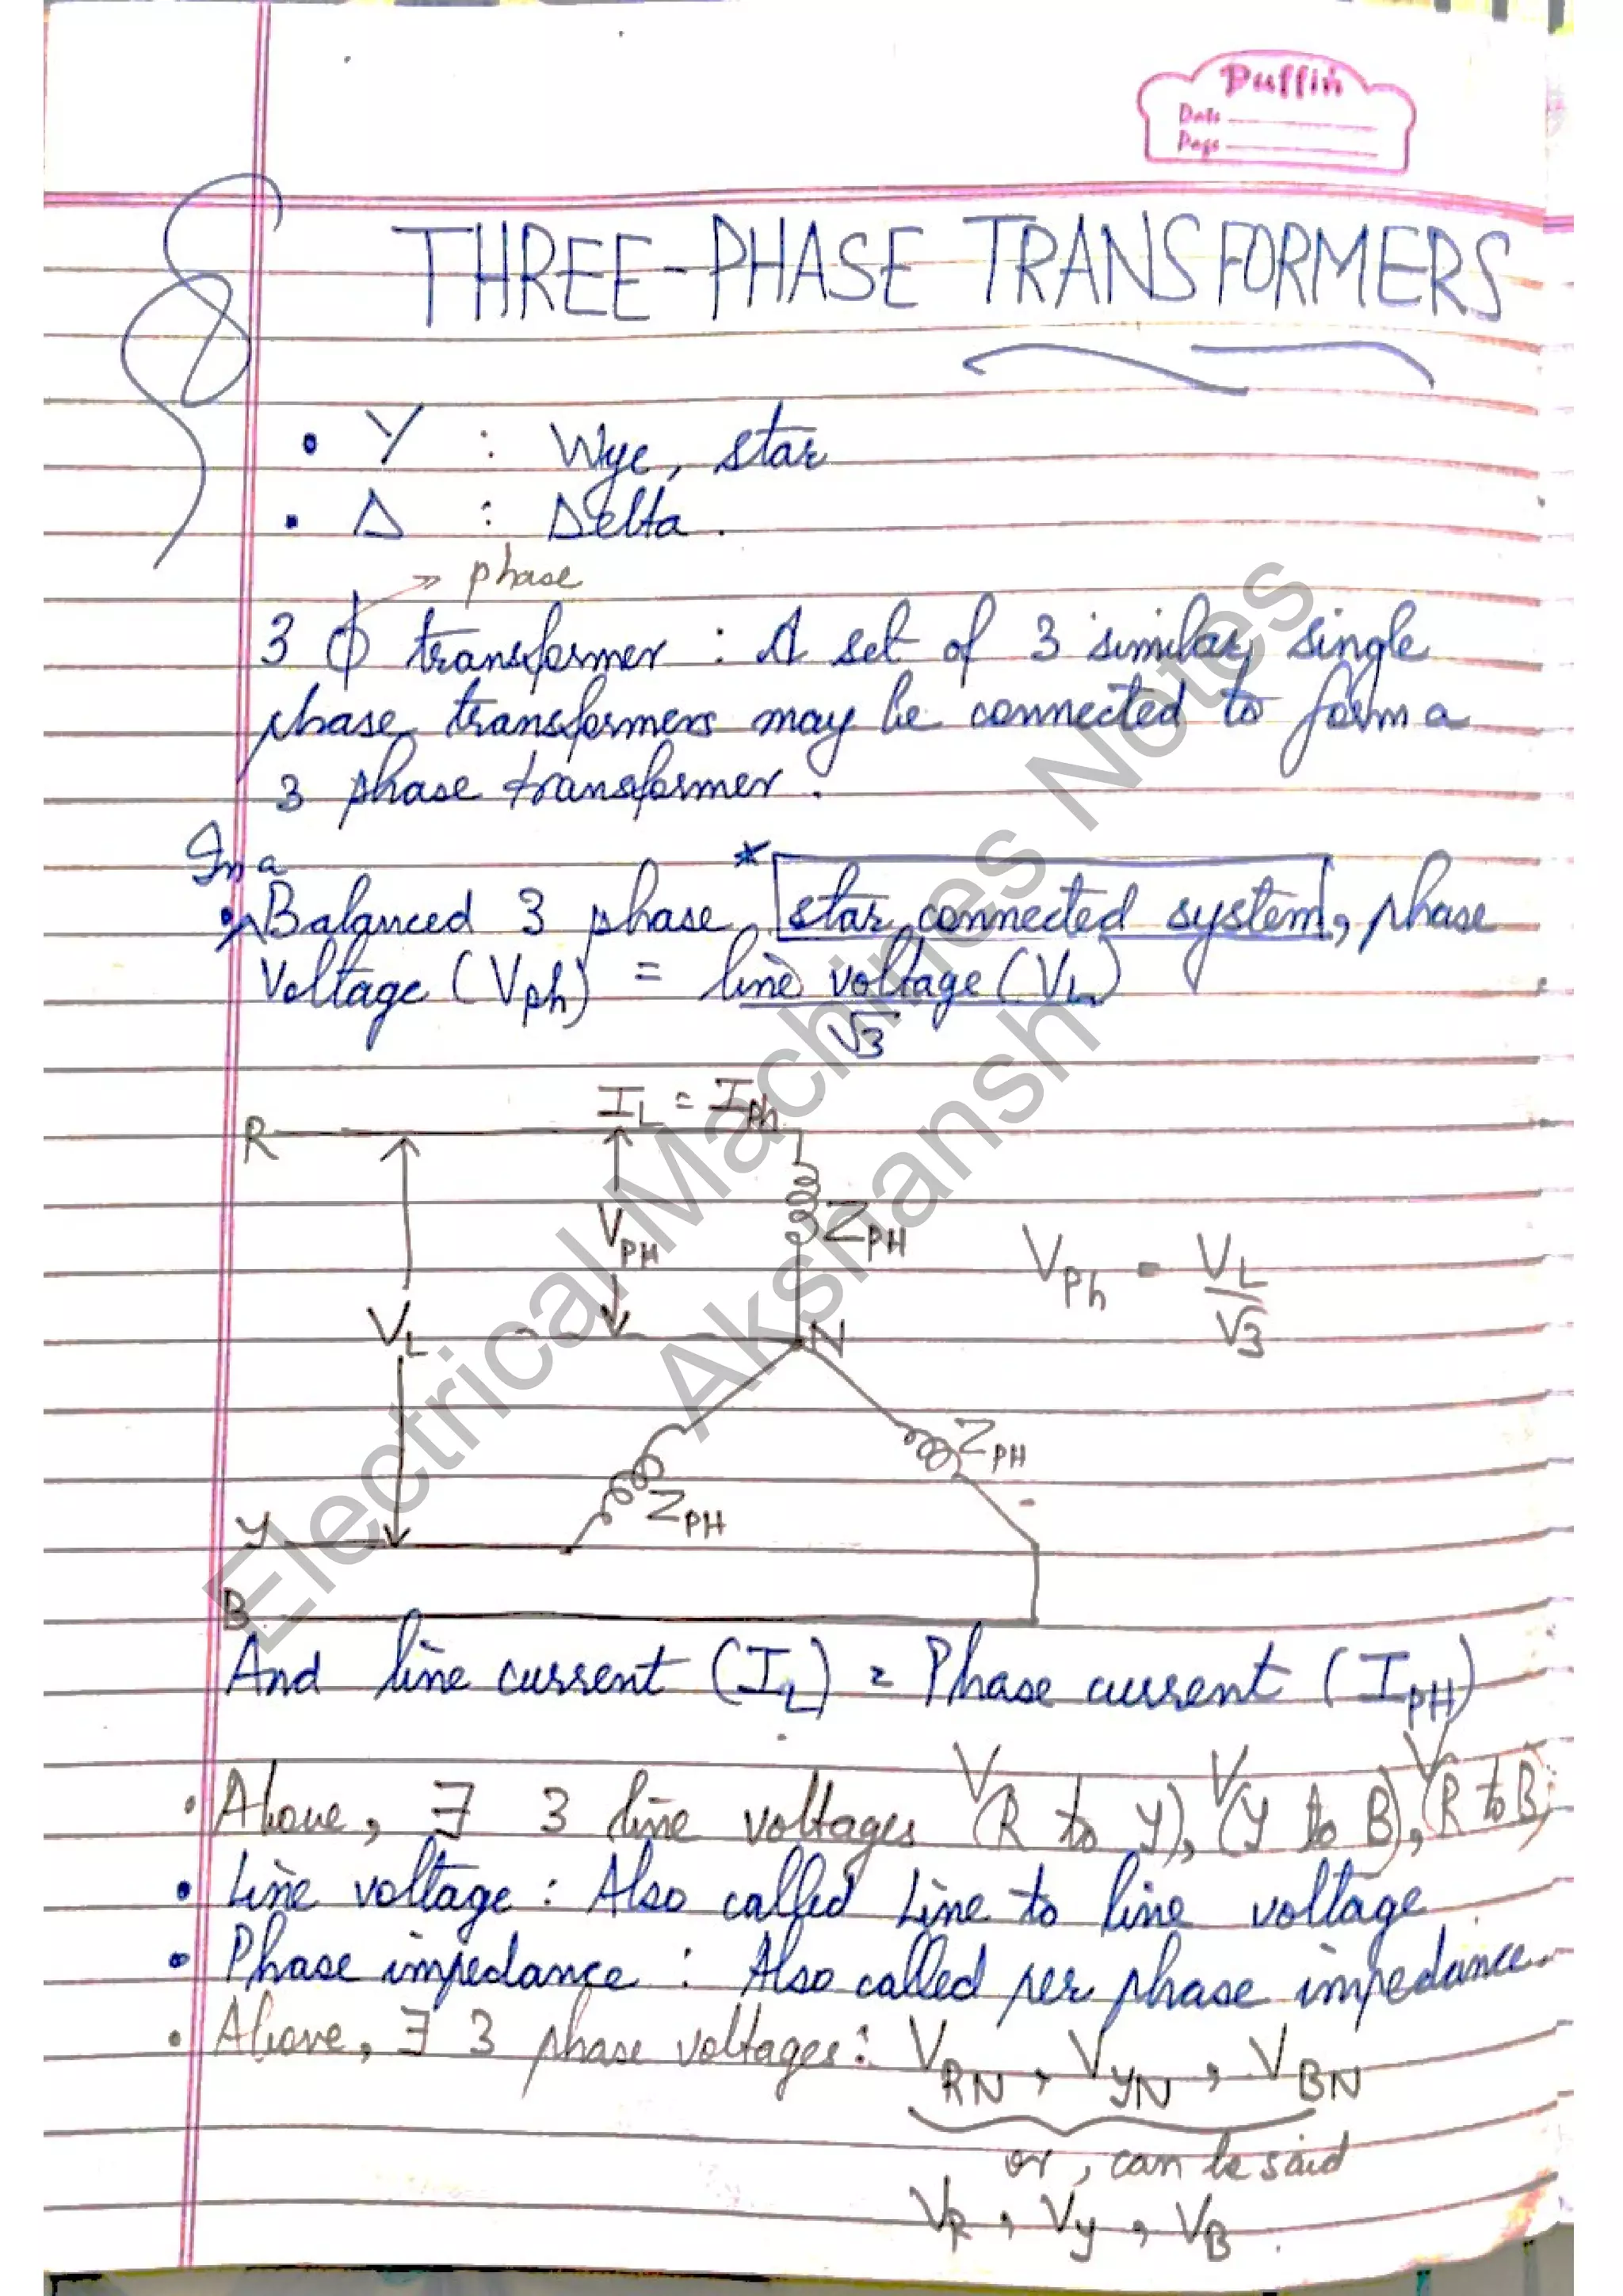 Puffin
Date
Page
THREE-PHASE TRANSFORMERS
• Y : Wye, star
• Δ : Delta.
→ phase
3 ϕ transformer : A set of 3 similar, single
phase transformers may be connected to form a
3 phase transformer.
In a
• Balanced 3 phase * star connected system, phase
Voltage (Vph) = line voltage (VL)
√3
IL = IPh
R
VPH
ZPH
VPh = VL
√3
VL
N
ZPH
ZPH
Y
B
And line current (IL) = Phase current (IPH)
• Above, ∃ 3 line voltages V(R to Y), V(Y to B), V(R to B)
• Line voltage : Also called Line to line voltage
• Phase impedance : Also called per phase impedance.
• Above, ∃ 3 phase voltages : VRN, VYN, VBN
or, can be said
VR, VY, VB.
Electrical Machines Notes
Akshansh